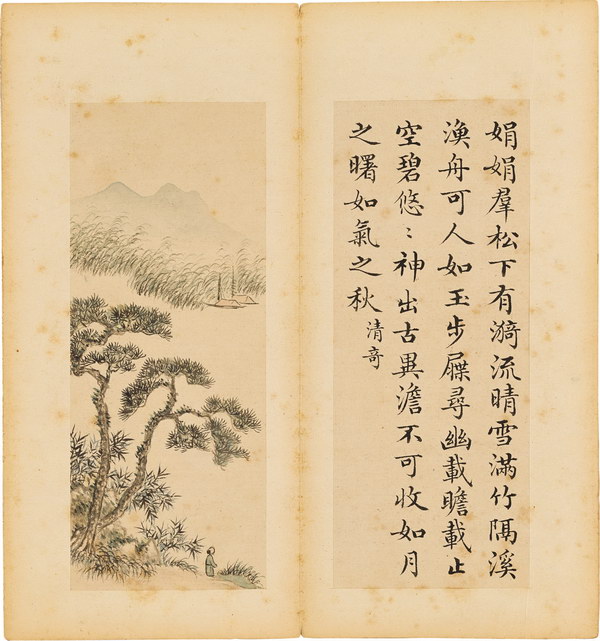 娟娟羣松下有漪流晴雪滿竹隔溪
漁舟可人如玉步屧尋幽載瞻載止
空碧悠〻神出古異澹不可收如月
之曙如氣之秋
清奇